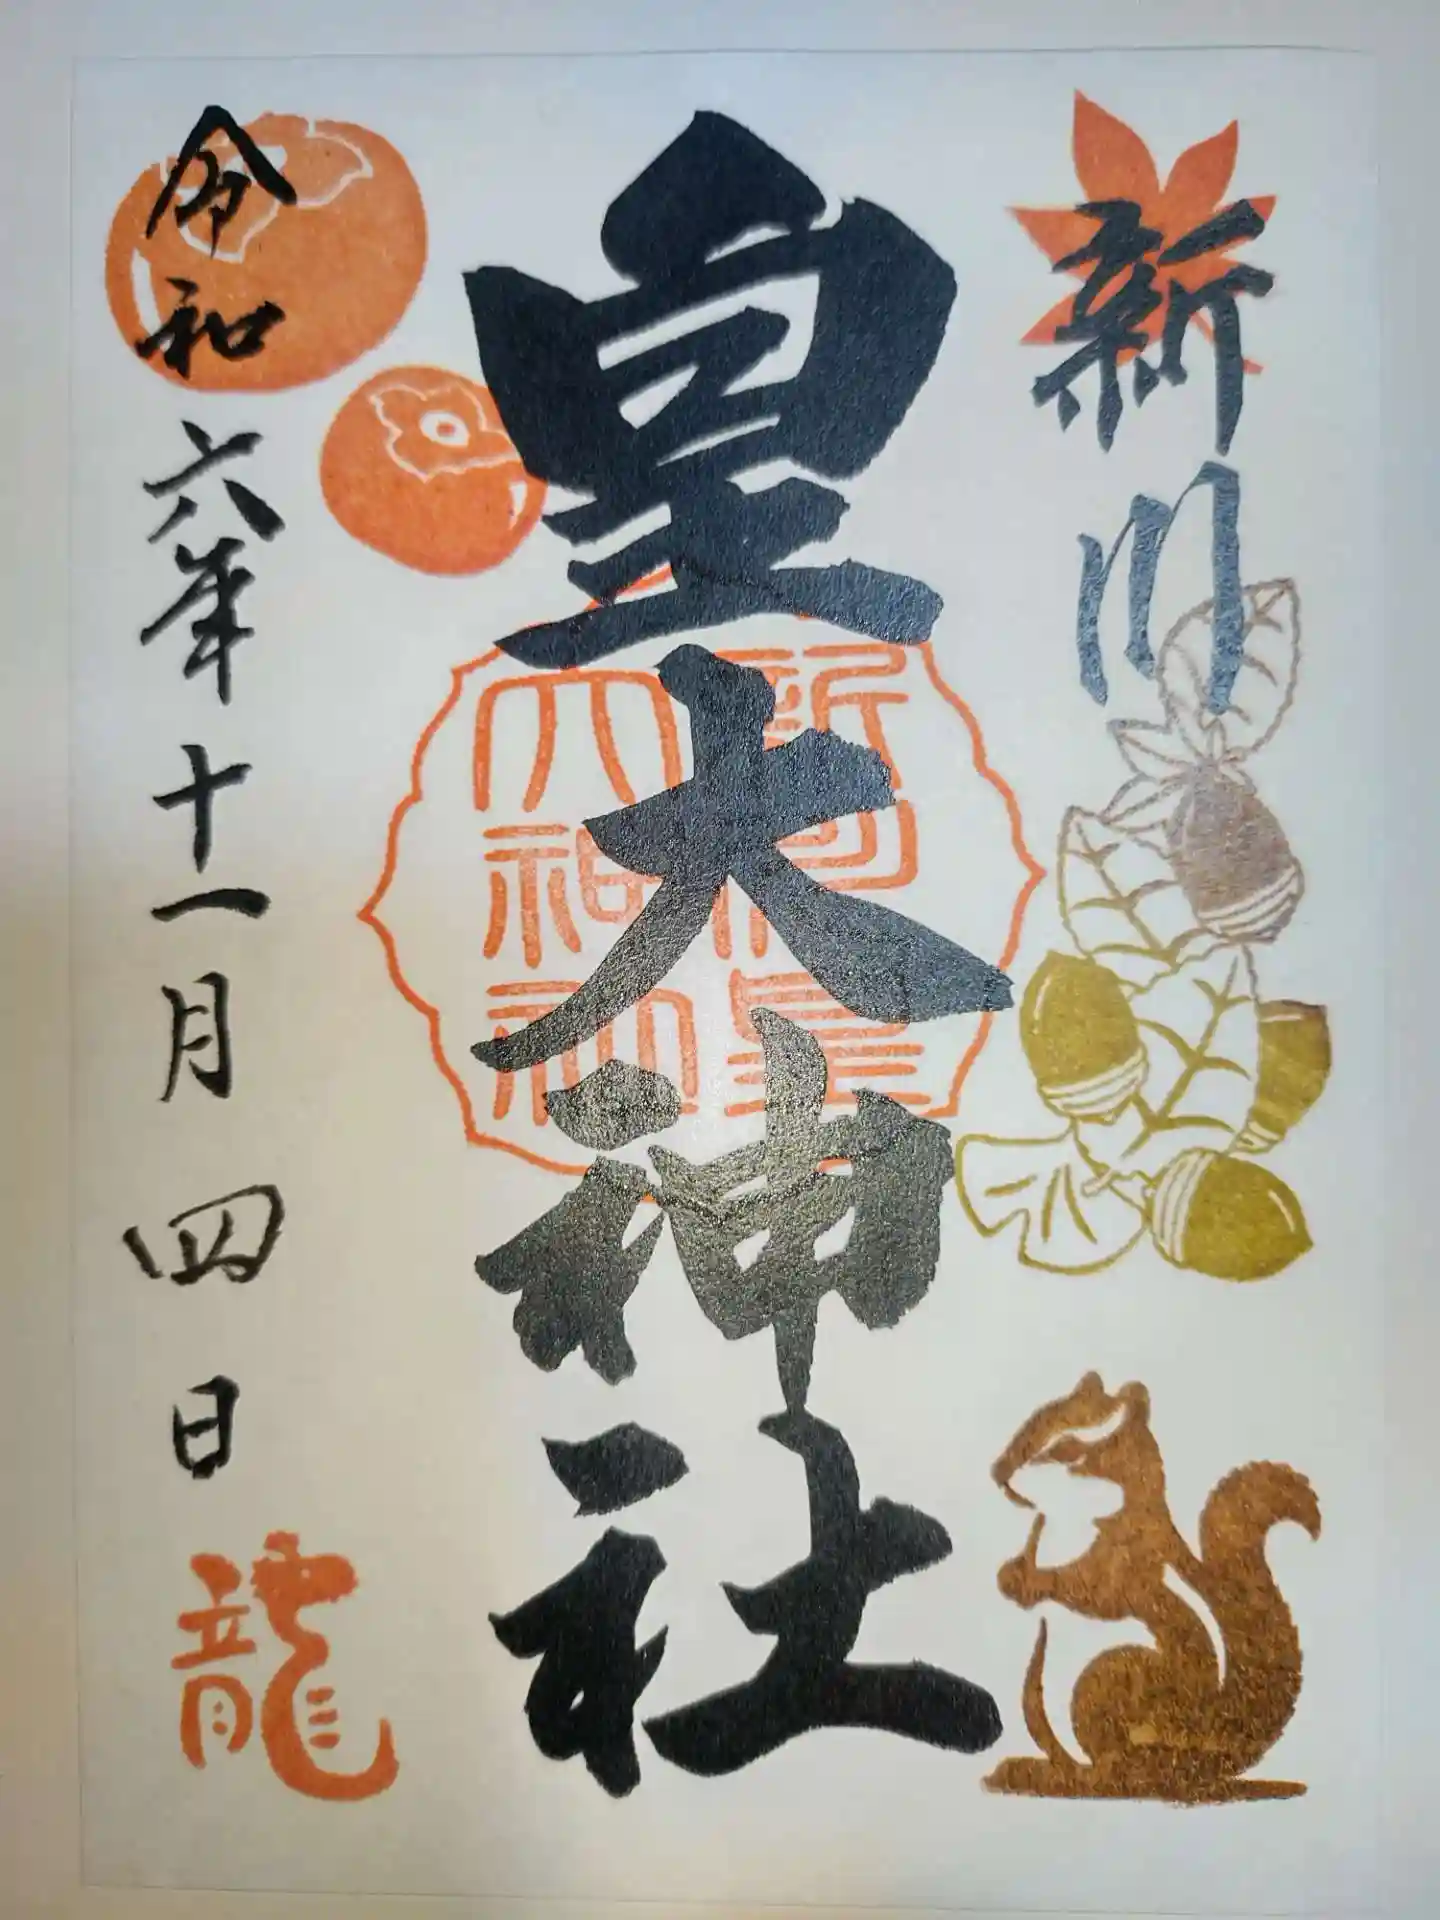 新川
皇大神社
新川皇大神社
令和六年十一月四日
龍